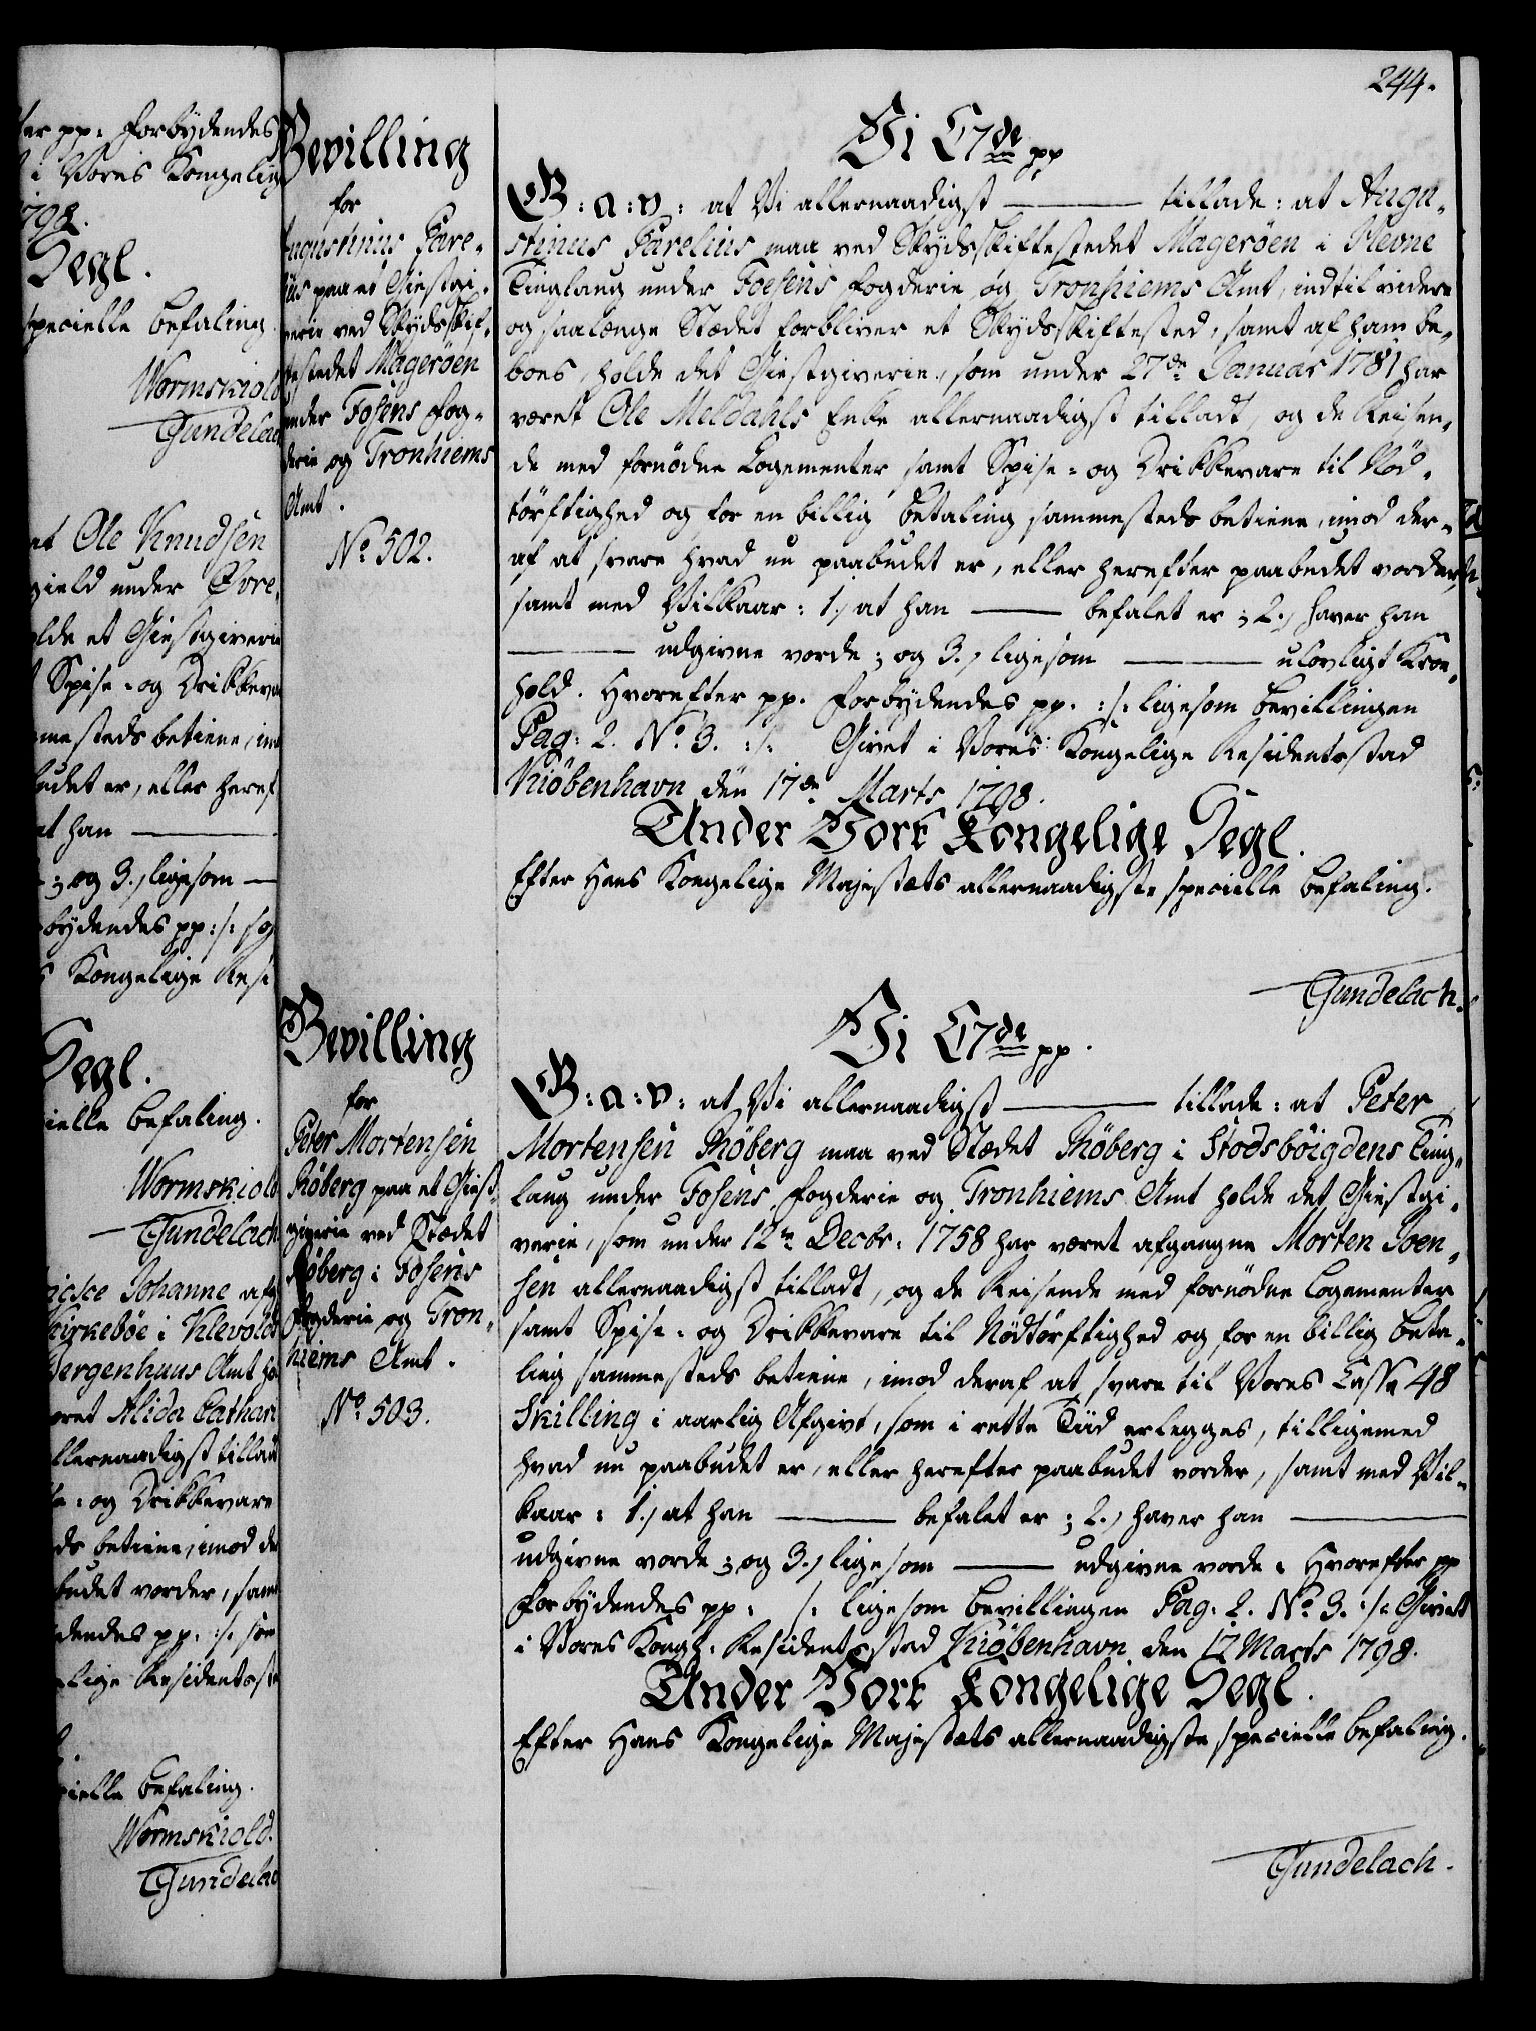 er pp: forbydendes
i Vores Kongelig
1798.
Segl.
specielle Befaling.
Wormskiold
Gundelach
et Ole Knudsen
gield under Øvre,
olde et Giestgiverie
Spise- og Drikkeva
mmesteds betiene, im
budet er, eller heref
at han ———
; og 3.) ligesom —
bydendes pp: /:
s Kongelige Resi
Segl.
cielle Befaling.
Wormskiold
Gundelach
Johanne afg
Kirkebøe i Klevolds
Bergenhuus Amt ho
været Alida Cathari
allernaadigst tilla
se- og Drikkevare
ds betiene, imod de
budet vorder, samt
dendes pp: /:
elige Residentsst
cielle Befaling.
Wormskiold.
Gundelac
Bevilling
for
Augustinus Pare-
lius paa et Giestgi-
verie ved Skydsskif-
testedet Magerøen
under Fosens Fog-
derie og Tronhiems
Amt.
No. 502.
Bevilling
for
Peter Mortensen
Røberg paa et Giest-
giverie ved Stædet
Røberg i Fosens
Fogderie og Tron-
hiems Amt.
No. 503.
244.
Vi C7de pp
G: a: v: at Vi allernaadigst ——— tillade: at Augu-
stinus Parelius maa ved Skydsskiftestedet Magerøen i Hevne
Tinglaug under Foesens Fogderie og Tronhiems Amt, indtil videre
og saalænge Stædet forbliver et Skydsskiftested, samt af ham be-
boes, holde det Giestgiverie, som under 27de Januar 1781 har
været Ole Meldahls Enke allernaadigst tilladt, og de Reisen-
de med fornødne Logementer samt Spise- og Drikkevare til Nød-
tørftighed og for en billig Betaling sammesteds betiene, imod der-
af at svare hvad nu paabudet er, eller herefter paabudet vorder,
samt med Vilkaar: 1.) at han ——— befalet er; 2.) haver han
——— udgivne vorde; og 3.) ligesom ——— ulovligt Kroe-
hold. Hvorefter pp. Forbydendes pp. :/: ligesom Bevillingen
Pag: 2. No. 3. :/: Givet i Vores Kongelige Residentsstad
Kiøbenhavn den 17de Marts 1798.
Under Vort Kongelige Segl.
Efter Hans Kongelige Majestæts allernaadigste specielle Befaling.
Gundelach.
Vi C7de pp.
G: a: v: at Vi allernaadigst ——— tillade: at Peter
Mortensen Røberg maa ved Stædet Røberg i Stodsbøigdens Ting-
laug under Fosens Fogderie og Tronhiems Amt holde det Giestgi-
verie, som under 12te Decbr: 1758 har været afgangne Morten Joen-
sen allernaadigst tilladt, og de Reisende med fornødne Logementer
samt Spise- og Drikkevare til Nødtørftighed og for en billig Beta-
ling sammesteds betiene, imod deraf at svare til Vores Cassa 48
Skilling i aarlig Afgivt, som i rette Tiid erlegges, tilligemed
hvad nu paabudet er, eller herefter paabudet vorder, samt med Vil-
kaar: 1.) at han ——— befalet er; 2.) haver han ———
udgivne vorde; og 3.) ligesom ——— udgivne vorde. Hvorefter pp
Forbydendes pp: /: ligesom Bevillingen Pag: 2. No. 3. :/: Givet
i Vores Kongl: Residentsstad Kiøbenhavn den 17 Marts 1798.
Under Vort Kongelige Segl.
Efter Hans Kongelige Majestæts allernaadigste specielle Befaling.
Gundelach.